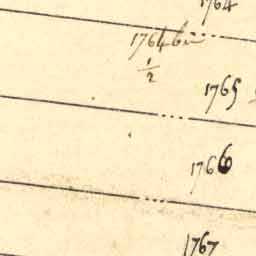 1764
1764 b
1/2
1765
1766
1767